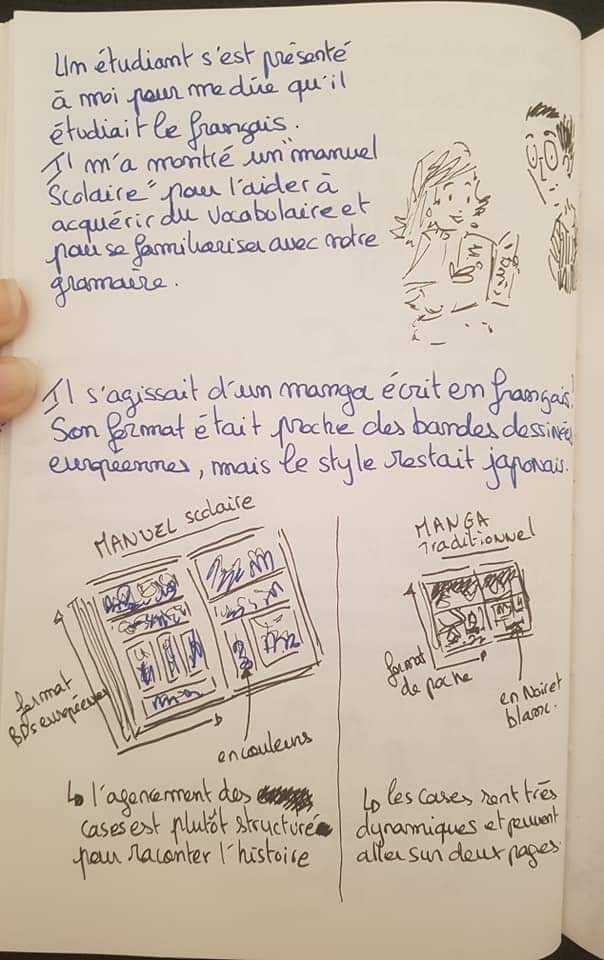 Un étudiant s'est présenté
à moi pour me dire qu'il
étudiait le français.
Il m'a montré un "manuel
scolaire" pour l'aider à
acquérir du vocabulaire et
pour se familiariser avec notre
gramaire.
Il s'agissait d'un manga écrit en français.
Son format était proche des bandes dessinées
européennes, mais le style restait japonais.
MANUEL scolaire
format
BDs européennes
en couleurs
↳ l'agencement des
cases est plutôt structuré
pour raconter l'histoire
MANGA
traditionnel
format
de poche
en Noir et
blanc.
↳ les cases sont très
dynamiques et peuvent
aller sur deux pages